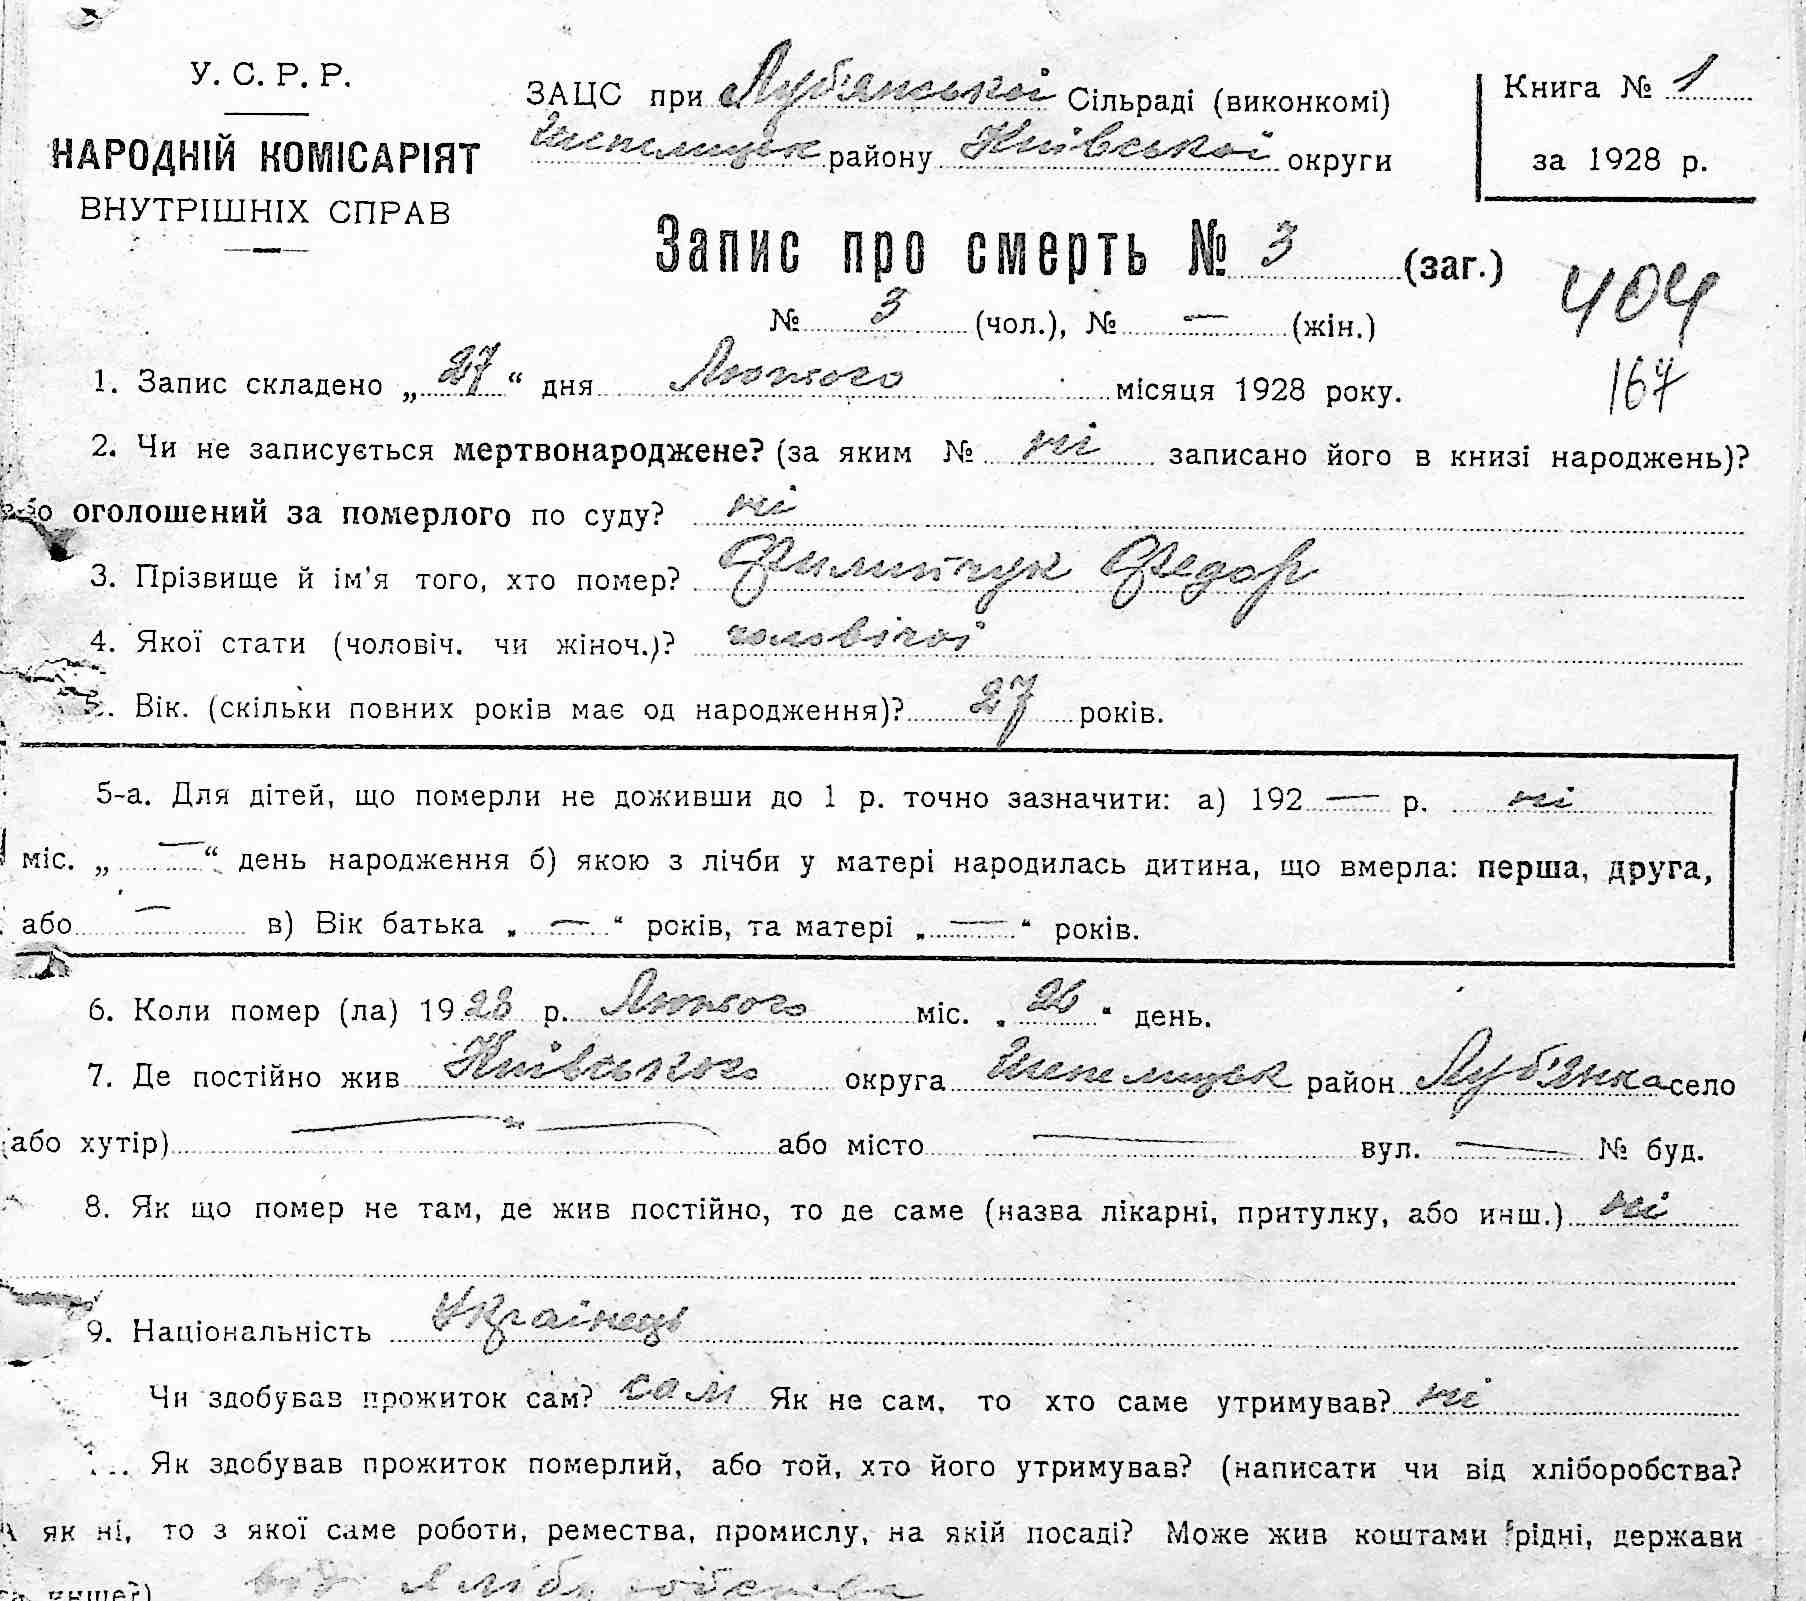 У. С. Р. Р.
НАРОДНІЙ КОМІСАРІЯТ
ВНУТРІШНІХ СПРАВ
ЗАЦС при Лубянській Сільраді (виконкомі)
Шепелицьк району Київської округи
Книга № 1
за 1928 р.
Запис про смерть № 3 (заг.)
404
№ 3 (чол.), № — (жін.)
167
1. Запис складено „27“ дня Лютого місяця 1928 року.
2. Чи не записується мертвонароджене? (за яким № ні записано його в книзі народжень)?
або оголошений за померлого по суду? ні
3. Прізвище й ім'я того, хто помер? Филипчук Федор
4. Якої стати (чоловіч. чи жіноч.)? чоловічої
5. Вік. (скільки повних років має од народження)? 27 років.
5-а. Для дітей, що померли не доживши до 1 р. точно зазначити: а) 192 — р. ні
міс. „ — “ день народження б) якою з лічби у матері народилась дитина, що вмерла: перша, друга,
або — в) Вік батька „ — “ років, та матері „ — “ років.
6. Коли помер (ла) 1928 р. Лютого міс. „26“ день.
7. Де постійно жив Київського округа Шепелицьк район Луб'янка село
(або хутір) — або місто — вул. — № буд.
8. Як що помер не там, де жив постійно, то де саме (назва лікарні, притулку, або инш.) ні
9. Національність Українець
Чи здобував прожиток сам? сам Як не сам, то хто саме утримував? ні
Як здобував прожиток померлий, або той, хто його утримував? (написати чи від хліборобства?
А як ні, то з якої саме роботи, ремества, промислу, на якій посаді? Може жив коштами рідні, держави
инше?) від